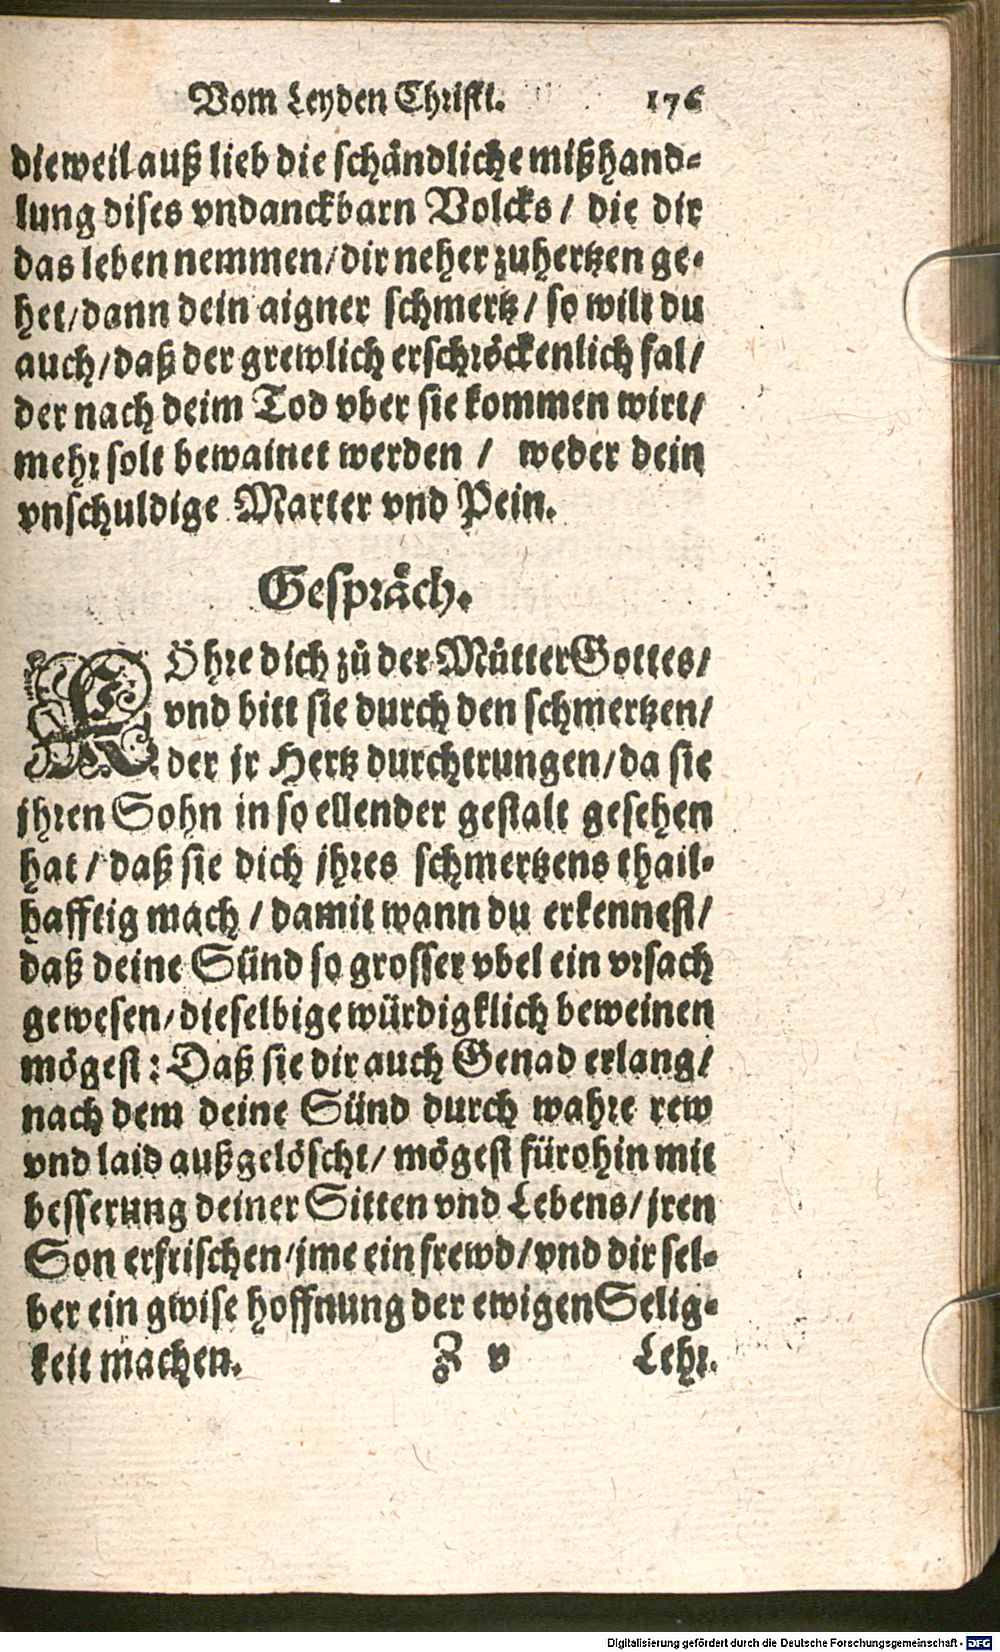 Vom Leyden Christi. 176
dieweil auß lieb die schändliche mißhand-
lung dises vndanckbarn Volcks / die dir
das leben nemmen/dir neher zuhertzen ge-
het/dann dein aigner schmertz / so wilt du
auch/daß der grewlich erschröckenlich fal/
der nach deim Tod vber sie kommen wirt/
mehr solt bewainet werden / weder dein
vnschuldige Marter vnd Pein.
Gespräch.
KÖhre dich zů der Můtter Gottes/
vnd bitt sie durch den schmertzen/
der jr Hertz durchtrungen/da sie
jhren Sohn in so ellender gestalt gesehen
hat / daß sie dich jhres schmertzens thail-
hafftig mach / damit wann du erkennest/
daß deine Sünd so grosser vbel ein vrsach
gewesen/dieselbige würdigklich beweinen
mögest: Daß sie dir auch Genad erlang/
nach dem deine Sünd durch wahre rew
vnd laid außgelöscht/ mögest fürohin mit
besserung deiner Sitten vnd Lebens/jren
Son erfrischen/jme ein frewd/vnd dir sel-
ber ein gwise hoffnung der ewigen Selig-
keit machen. Z v Lehr.
Digitalisierung gefördert durch die Deutsche Forschungsgemeinschaft - DFG